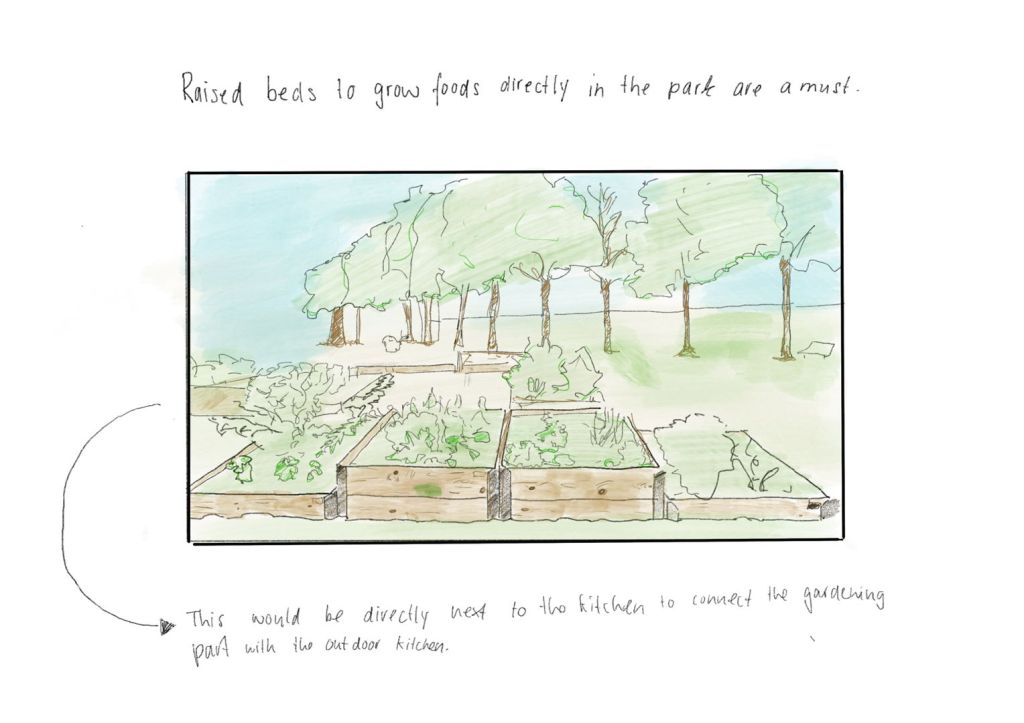 Raised beds to grow foods directly in the park are a must.
This would be directly next to the kitchen to connect the gardening
part with the outdoor kitchen.